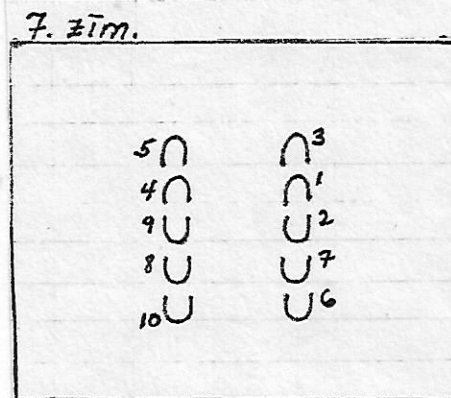 7. zīm.
5 3
4 1
9 2
8 7
10 6